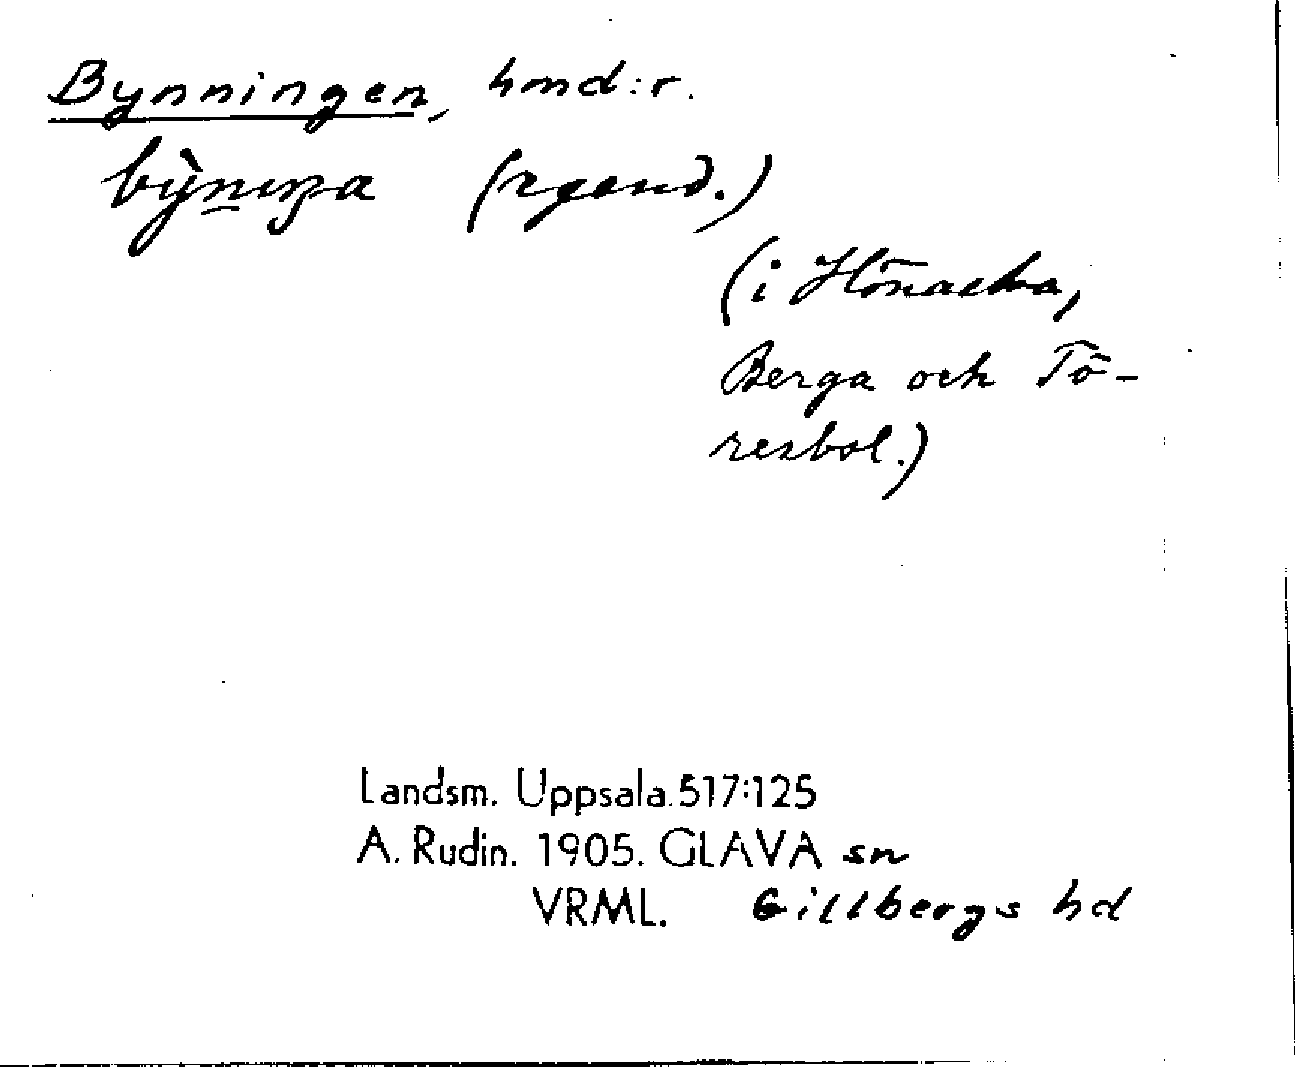 Bynningen, hmd:r.
(rgend.)
(i Hönacka,
Berga och Tö-
resbol.)
Landsm. Uppsala.517:125
A. Rudin. 1905. GLAVA sn
VRML. Gillbergs hd